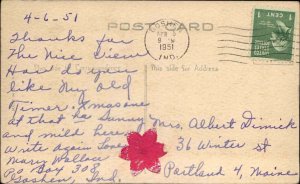 4-6-51
Thanks for
The Nice View
How do you
like My Old
Timer. Xmasone
at that ha Sunny
and mild here
Write again Love
Mary Wallace
PO Box 308
Goshen, Ind.
POSTCARD
This side for Address
GOSHEN
9
1951
IND.
1 CENT 1
Mrs. Albert Dimick
36 Winter St
Portland 4, Maine